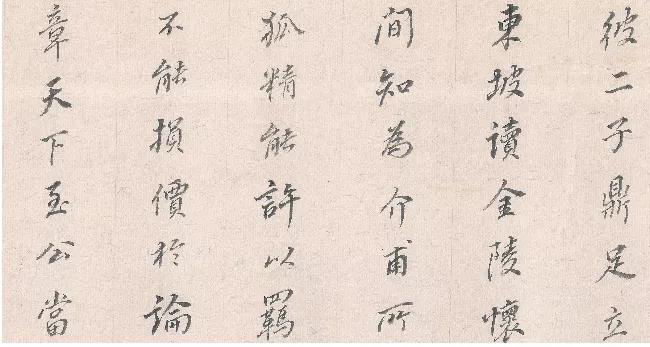 彼二子鼎足立
東坡讀金陵懷
間知為介甫所
狐精能許以羈
不能損價於論
章天下至公當